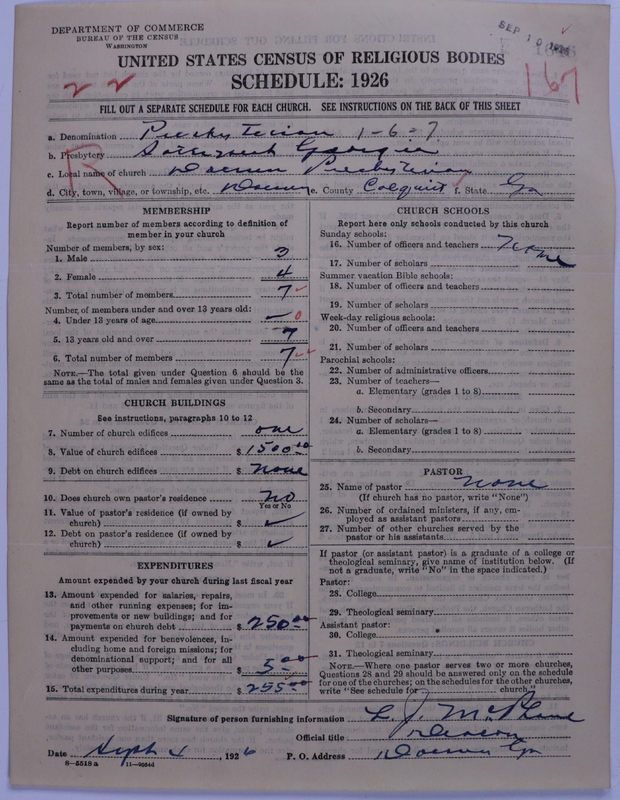 DEPARTMENT OF COMMERCE
BUREAU OF THE CENSUS
WASHINGTON
SEP 10
UNITED STATES CENSUS OF RELIGIOUS BODIES
SCHEDULE: 1926
167
2 2
FILL OUT A SEPARATE SCHEDULE FOR EACH CHURCH. SEE INSTRUCTIONS ON THE BACK OF THIS SHEET
R
a. Denomination Presbyterian 1-6-7
b. Presbytery Southwest Georgia
c. Local name of church Doerun Presbyterian
d. City, town, village, or township, etc. Doerun e. County Colquitt f. State Ga
MEMBERSHIP
Report number of members according to definition of
member in your church
Number of members, by sex:
1. Male 3
2. Female 4
3. Total number of members 7
Number of members under and over 13 years old:
4. Under 13 years of age 0
5. 13 years old and over 7
6. Total number of members 7
NOTE.—The total given under Question 6 should be
same as the total of males and females given under Question 3.
CHURCH BUILDINGS
See instructions, paragraphs 10 to 12
7. Number of church edifices one
8. Value of church edifices $ 1500.00
9. Debt on church edifices $ none
10. Does church own pastor's residence no
Yes or No
11. Value of pastor's residence (if owned by
church) $ ✓
12. Debt on pastor's residence (if owned by
church) $ ✓
EXPENDITURES
Amount expended by your church during last fiscal year
13. Amount expended for salaries, repairs,
and other running expenses; for im-
provements or new buildings; and for
payments on church debt $ 250.00
14. Amount expended for benevolences, in-
cluding home and foreign missions; for
denominational support; and for all
other purposes $ 5.00
15. Total expenditures during year $ 255.00
CHURCH SCHOOLS
Report here only schools conducted by this church
Sunday schools:
16. Number of officers and teachers None
17. Number of scholars
Summer vacation Bible schools:
18. Number of officers and teachers
19. Number of scholars
Week-day religious schools:
20. Number of officers and teachers
21. Number of scholars
Parochial schools:
22. Number of administrative officers
23. Number of teachers—
a. Elementary (grades 1 to 8)
b. Secondary
24. Number of scholars—
a. Elementary (grades 1 to 8)
b. Secondary
PASTOR
25. Name of pastor none
(If church has no pastor, write "None")
26. Number of ordained ministers, if any, em-
ployed as assistant pastors
27. Number of other churches served by the
pastor or his assistants
If pastor (or assistant pastor) is a graduate of a college or
theological seminary, give name of institution below. (If
not a graduate, write "No" in the space indicated.)
Pastor:
28. College
29. Theological seminary
Assistant pastor:
30. College
31. Theological seminary
NOTE.—Where one pastor serves two or more churches,
Questions 28 and 29 should be answered only on the schedule
for one of the churches; on the schedules for the other churches,
write "See schedule for church."
Signature of person furnishing information L. J.
Official title Deacon
Date Sept 4, 1926 P. O. Address Doerun Ga
8-5518a 11-9584d